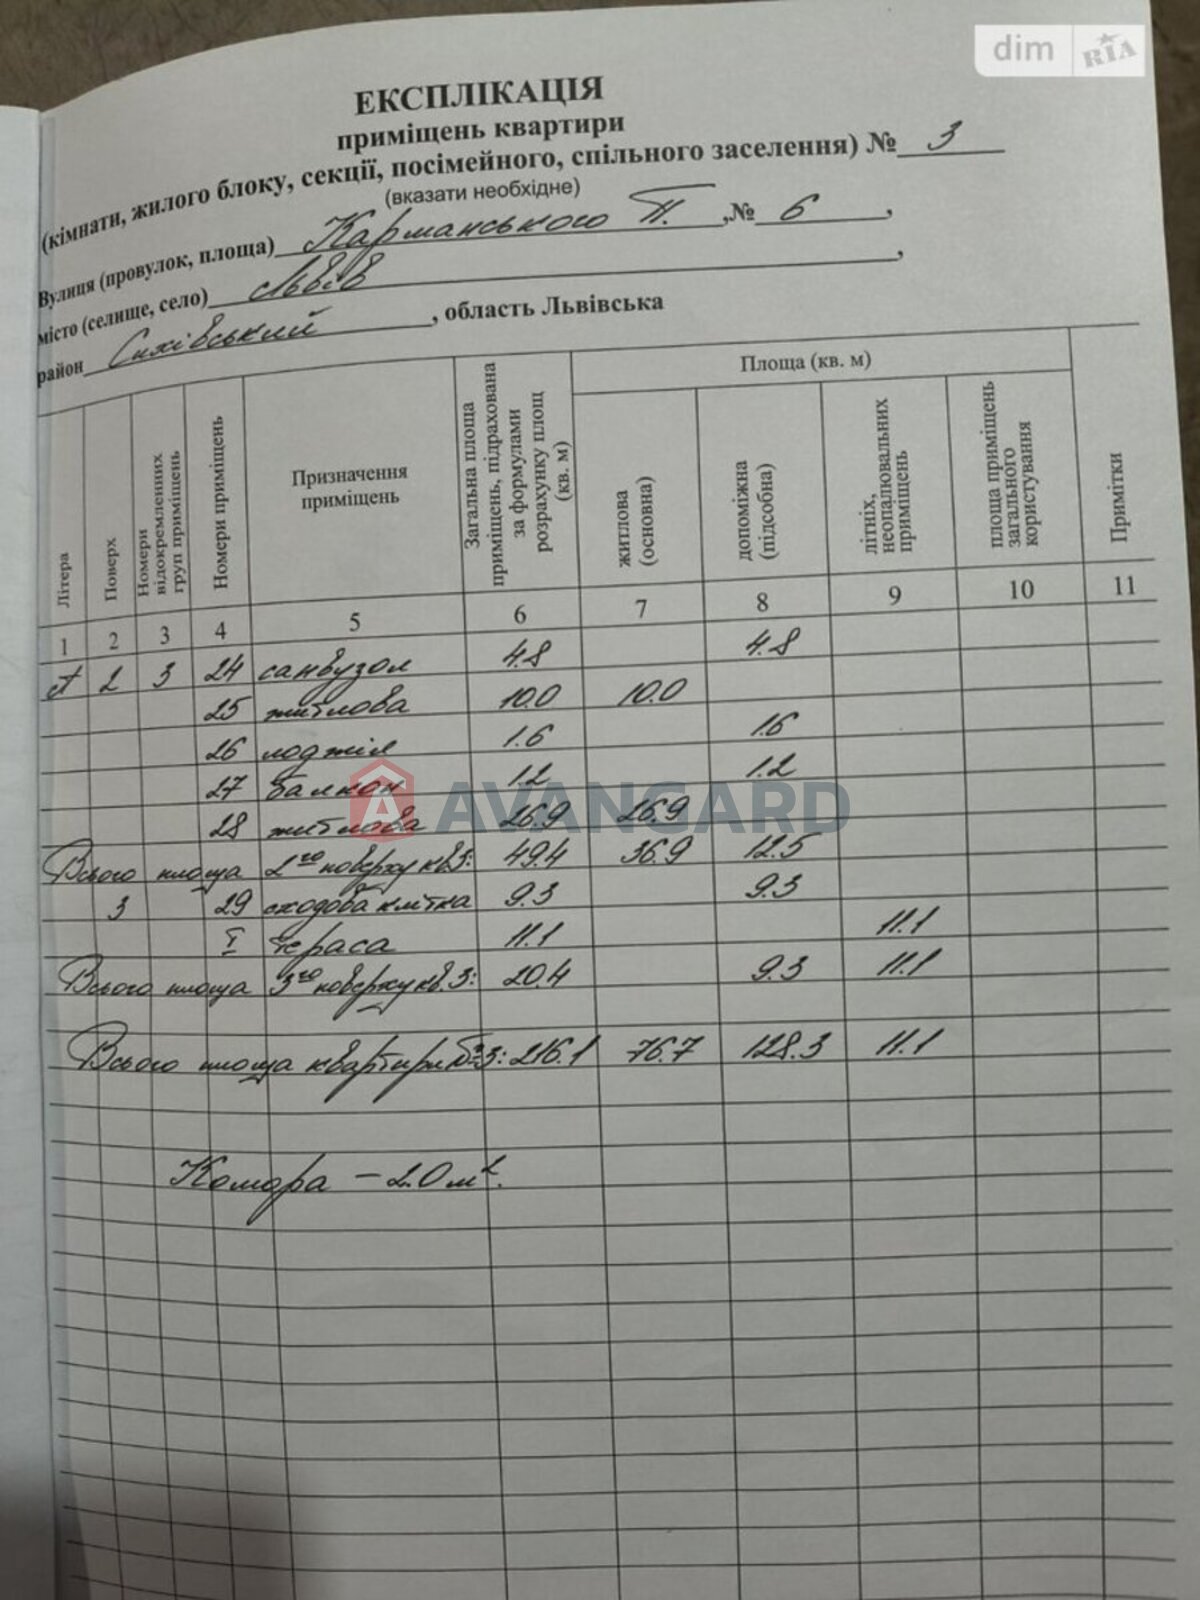 dim RIA
ЕКСПЛІКАЦІЯ
приміщень квартири
(кімнати, жилого блоку, секції, посімейного, спільного заселення) № 3
(вказати необхідне)
Вулиця (провулок, площа) Карманського П. ,№ 6 ,
місто (селище, село) Львів ,
район Сихівський , область Львівська
Літера
Поверх
Номери відокремленних груп приміщень
Номери приміщень
Призначення приміщень
Загальна площа приміщень, підрахована за формулами розрахунку площ (кв. м)
Площа (кв. м)
житлова (основна)
допоміжна (підсобна)
літніх, неопалювальних приміщень
площа приміщень загального користування
Примітки
1 2 3 4 5 6 7 8 9 10 11
А 2 3 24 санвузол 4.8 4.8
25 житлова 10.0 10.0
26 лоджія 1.6 1.6
27 балкон 1.2 1.2
AVANGARD
28 житлова 26.9 26.9
Всього площа 2го поверху кв.3: 49.4 36.9 12.5
3 29 сходова клітка 9.3 9.3
I тераса 11.1 11.1
Всього площа 3го поверху кв.3: 20.4 9.3 11.1
Всього площа квартири №3: 216.1 76.7 128.3 11.1
Комора – 2.0 м².